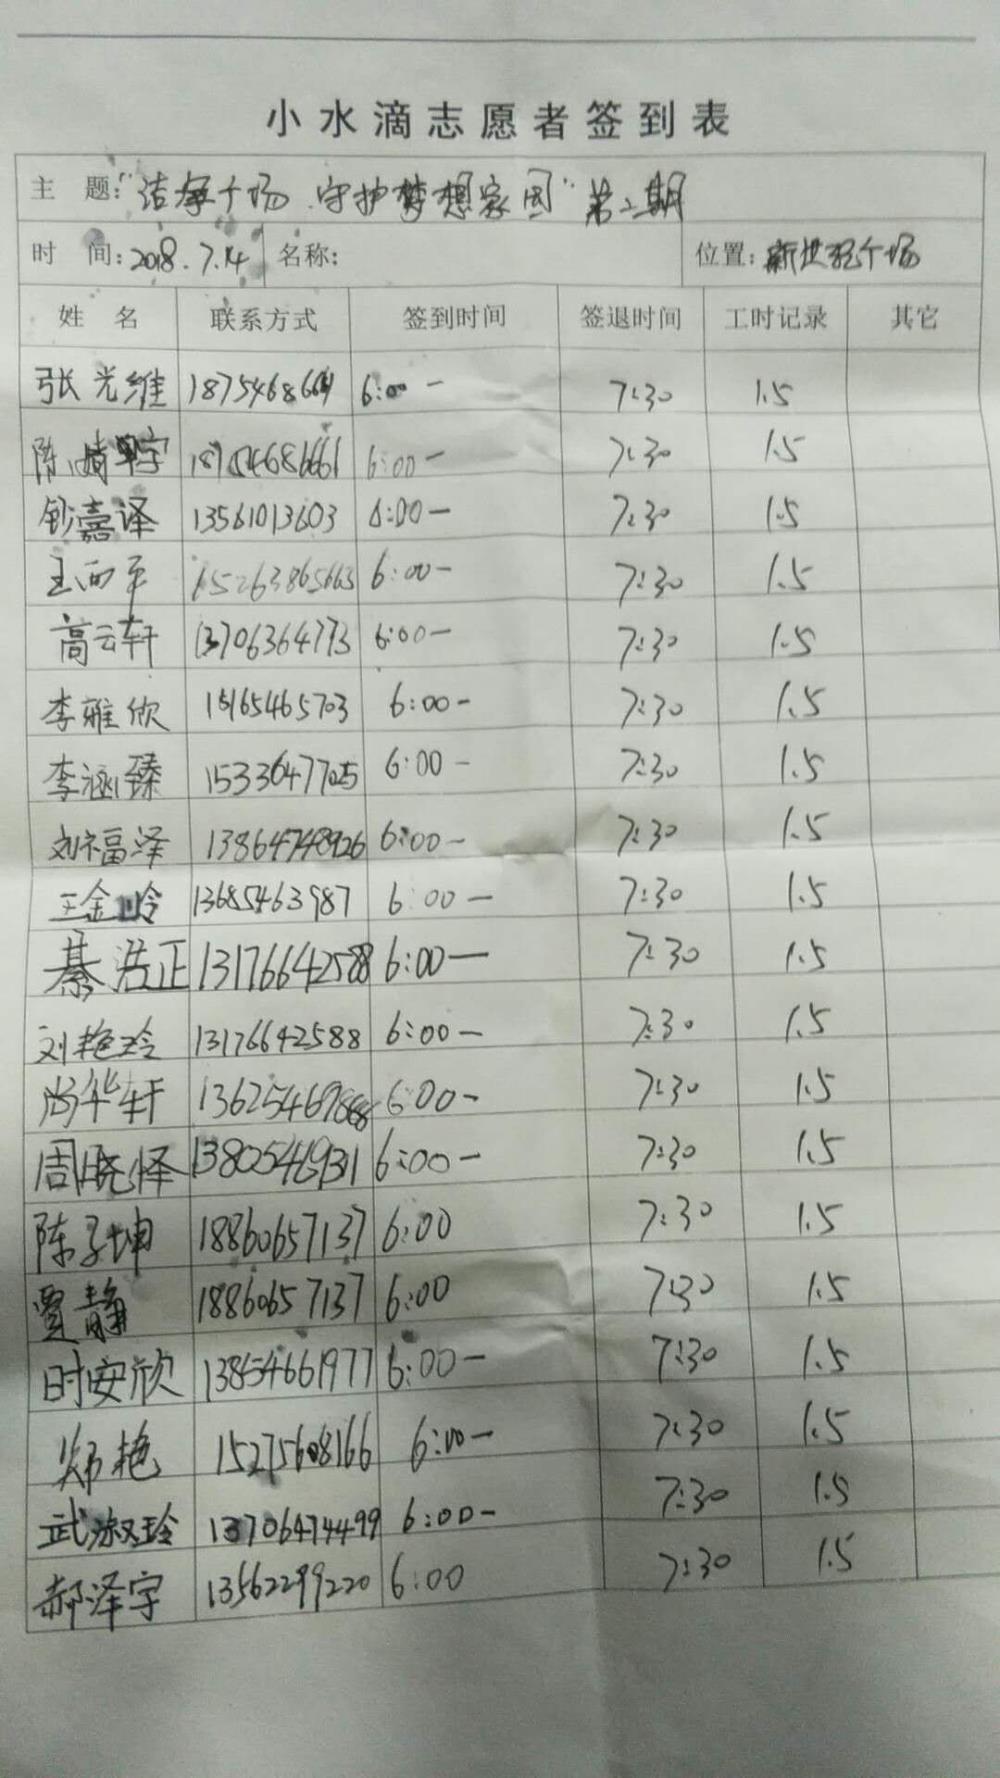 小水滴志愿者签到表
主 题:"洁净广场 守护梦想家园"第二期
时 间:2018.7.14 名称: 位置:新世纪广场
姓 名 联系方式 签到时间 签退时间 工时记录 其它
张光维 6:00 - 7:30 1.5
陈 宇 6:00 - 7:30 1.5
嘉译 13561013603 6:00 - 7:30 1.5
王西平 15263865663 6:00 - 7:30 1.5
高云轩 13706364773 6:00 - 7:30 1.5
李雅欣 6:00 - 7:30 1.5
李涵臻 15336477025 6:00 - 7:30 1.5
刘福泽 13864748926 6:00 - 7:30 1.5
王金玲 13685463987 6:00 - 7:30 1.5
綦浩正 13176642588 6:00 — 7:30 1.5
刘艳玲 13176642588 6:00 - 7:30 1.5
尚华轩 6:00 - 7:30 1.5
周晓怿 13805469311 6:00 - 7:30 1.5
陈子坤 18860657137 6:00 7:30 1.5
贾静 18860657137 6:00 7:30 1.5
时安欣 13854661977 6:00 - 7:30 1.5
郑艳 15275608166 6:00 - 7:30 1.5
武淑玲 13706474499 6:00 - 7:30 1.5
郝泽宇 13562299220 6:00 7:30 1.5